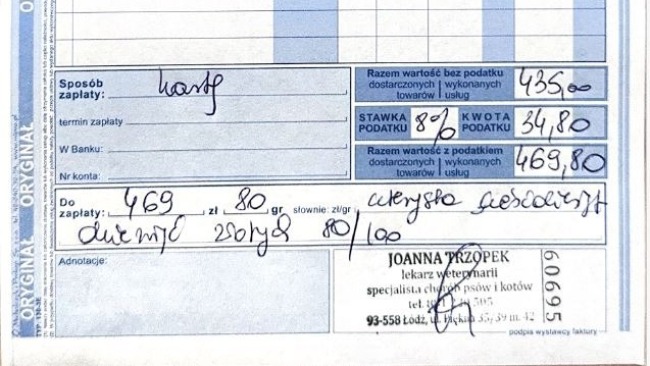 ORYGINAŁ ORYGINAŁ
ORYGINAŁ ORYGINAŁ
Sposób zapłaty: kartą
termin zapłaty
W Banku:
Nr konta:
Razem wartość bez podatku
dostarczonych towarów | wykonanych usług 435,00
STAWKA PODATKU 8% KWOTA PODATKU 34,80
Razem wartość z podatkiem
dostarczonych towarów | wykonanych usług 469,80
Do zapłaty: 469 zł 80 gr słownie: zł/gr czterysta sześćdziesiąt
dziewięć złotych 80/100
Adnotacje:
JOANNA TRZOPEK
lekarz weterynarii
specjalista chorób psów i kotów
tel.
93-558 Łódź, ul. 35/39 m. 42
60695
podpis wystawcy faktury